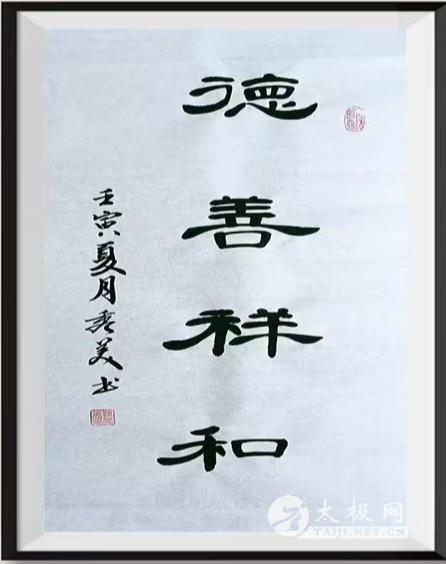 德善祥和
壬寅夏月秀美书
太极网
TAIJI.NET.CN